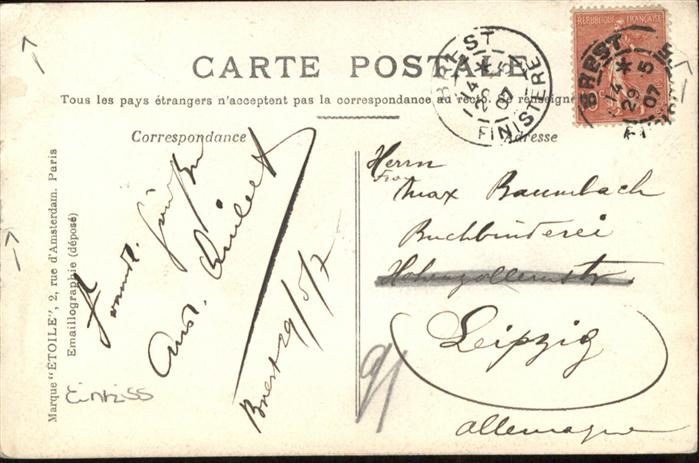 CARTE POSTALE
Tous les pays étrangers n'acceptent pas la correspondance au recto. Se renseigner
Correspondance
Adresse
BREST
14 *
29 5
07
FINISTERE
REPUBLIQUE FRANÇAISE
BREST
14 *
29 5
07
Marque "ÉTOILE", 2, rue d'Amsterdam. Paris
Emaillographie (déposé)
Brest 29/5/7
Herrn
Frau
Max Baumbach
Buchbinderei
Hohenzollernstr
Leipzig
Allemagne